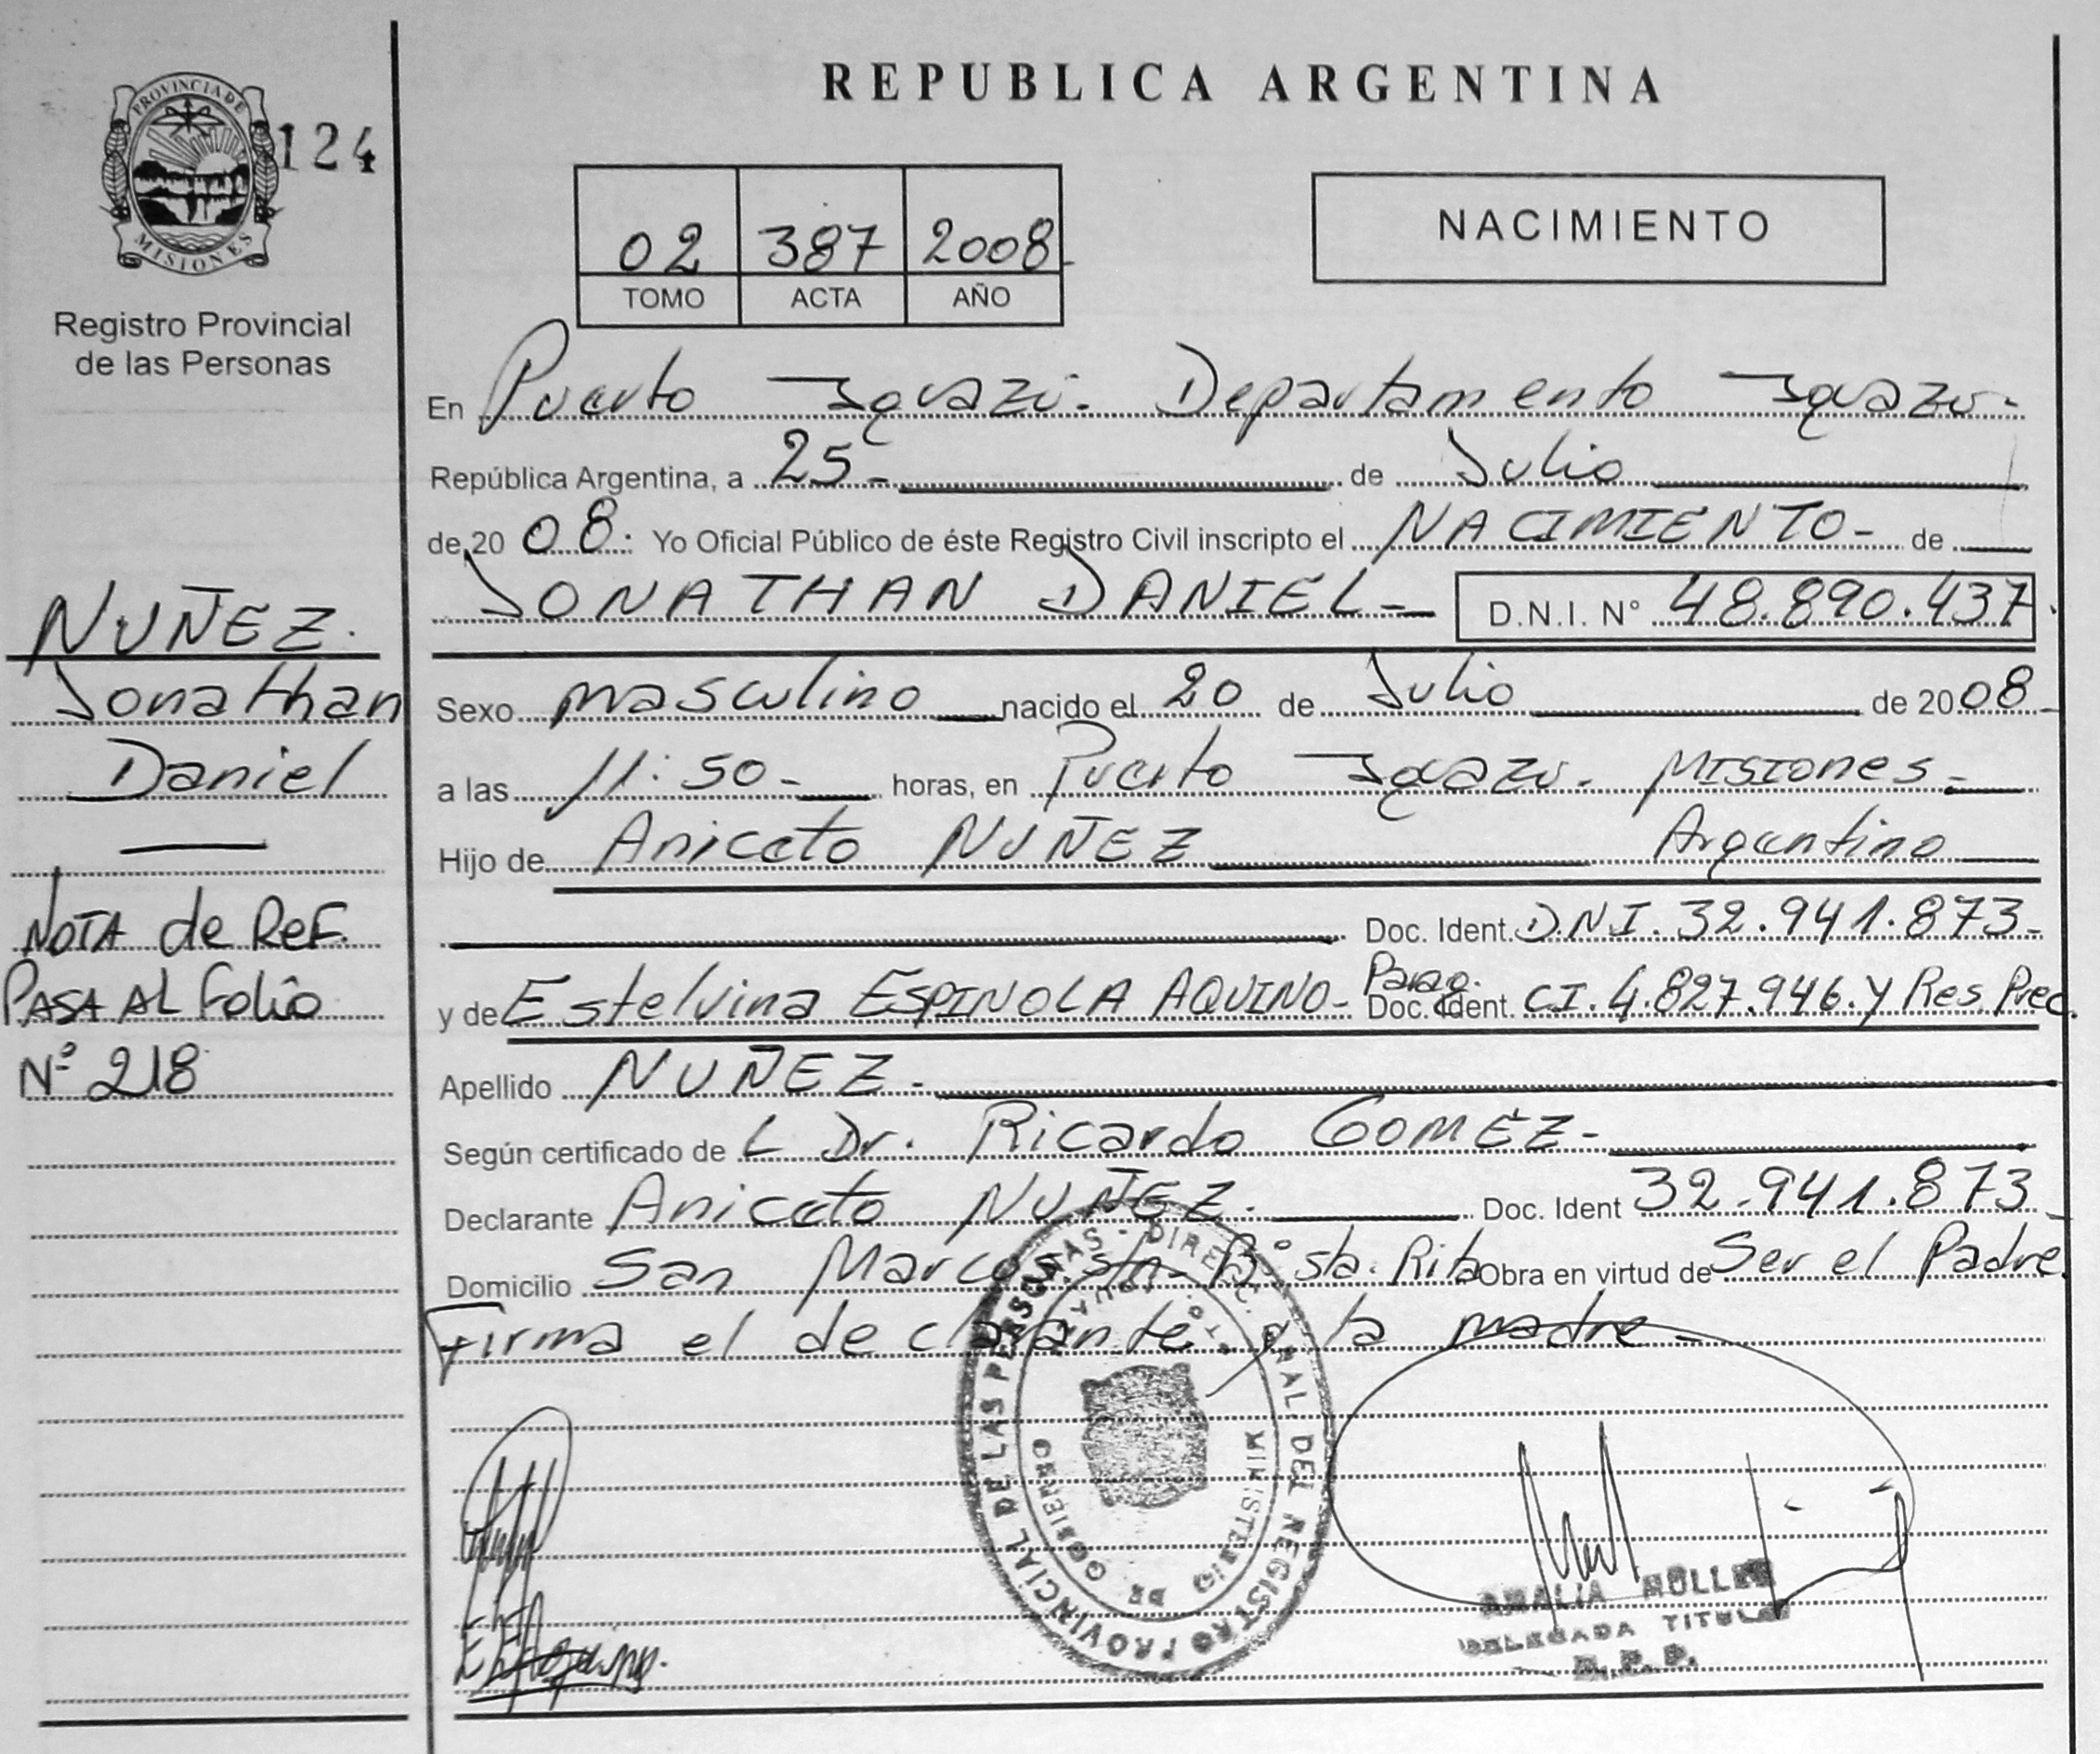 REPUBLICA ARGENTINA
PROVINCIA DE
MISIONES
124
Registro Provincial
de las Personas
NUÑEZ.
Jonathan
Daniel
NOTA de ReF.
PASA AL Folio
Nº 218
02 387 2008
TOMO ACTA AÑO
NACIMIENTO
En Puerto Iguazú. Departamento Iguazú-
República Argentina, a 25- de Julio
de 20 08. Yo Oficial Público de éste Registro Civil inscripto el NACIMIENTO- de
JONATHAN DANIEL- D.N.I. N° 48.890.437.
Sexo masculino nacido el 20 de Julio de 2008-
a las 11:50- horas, en Puerto Iguazú. Misiones-
Hijo de Aniceto NUÑEZ Argentino
Doc. Ident. D.N.I. 32.941.873-
y de Estelvina ESPINOLA AQUINO- Parag. Doc. Ident. CI. 4.827.946. y Res. Prec.
Apellido NUÑEZ-
Según certificado de L Dr. Ricardo GOMEZ-
Declarante Aniceto NUÑEZ. Doc. Ident 32.941.873-
Domicilio San Marco s/n- B° sta. Rita Obra en virtud de Ser el Padre.
Firma el declarante y la madre-
DIREC. GRAL. DEL REGISTRO PROVINCIAL DE LAS PERSONAS -
MINISTERIO DE GOBIERNO
AMALIA MULLER
DELEGADA TITULAR
R.P.P.